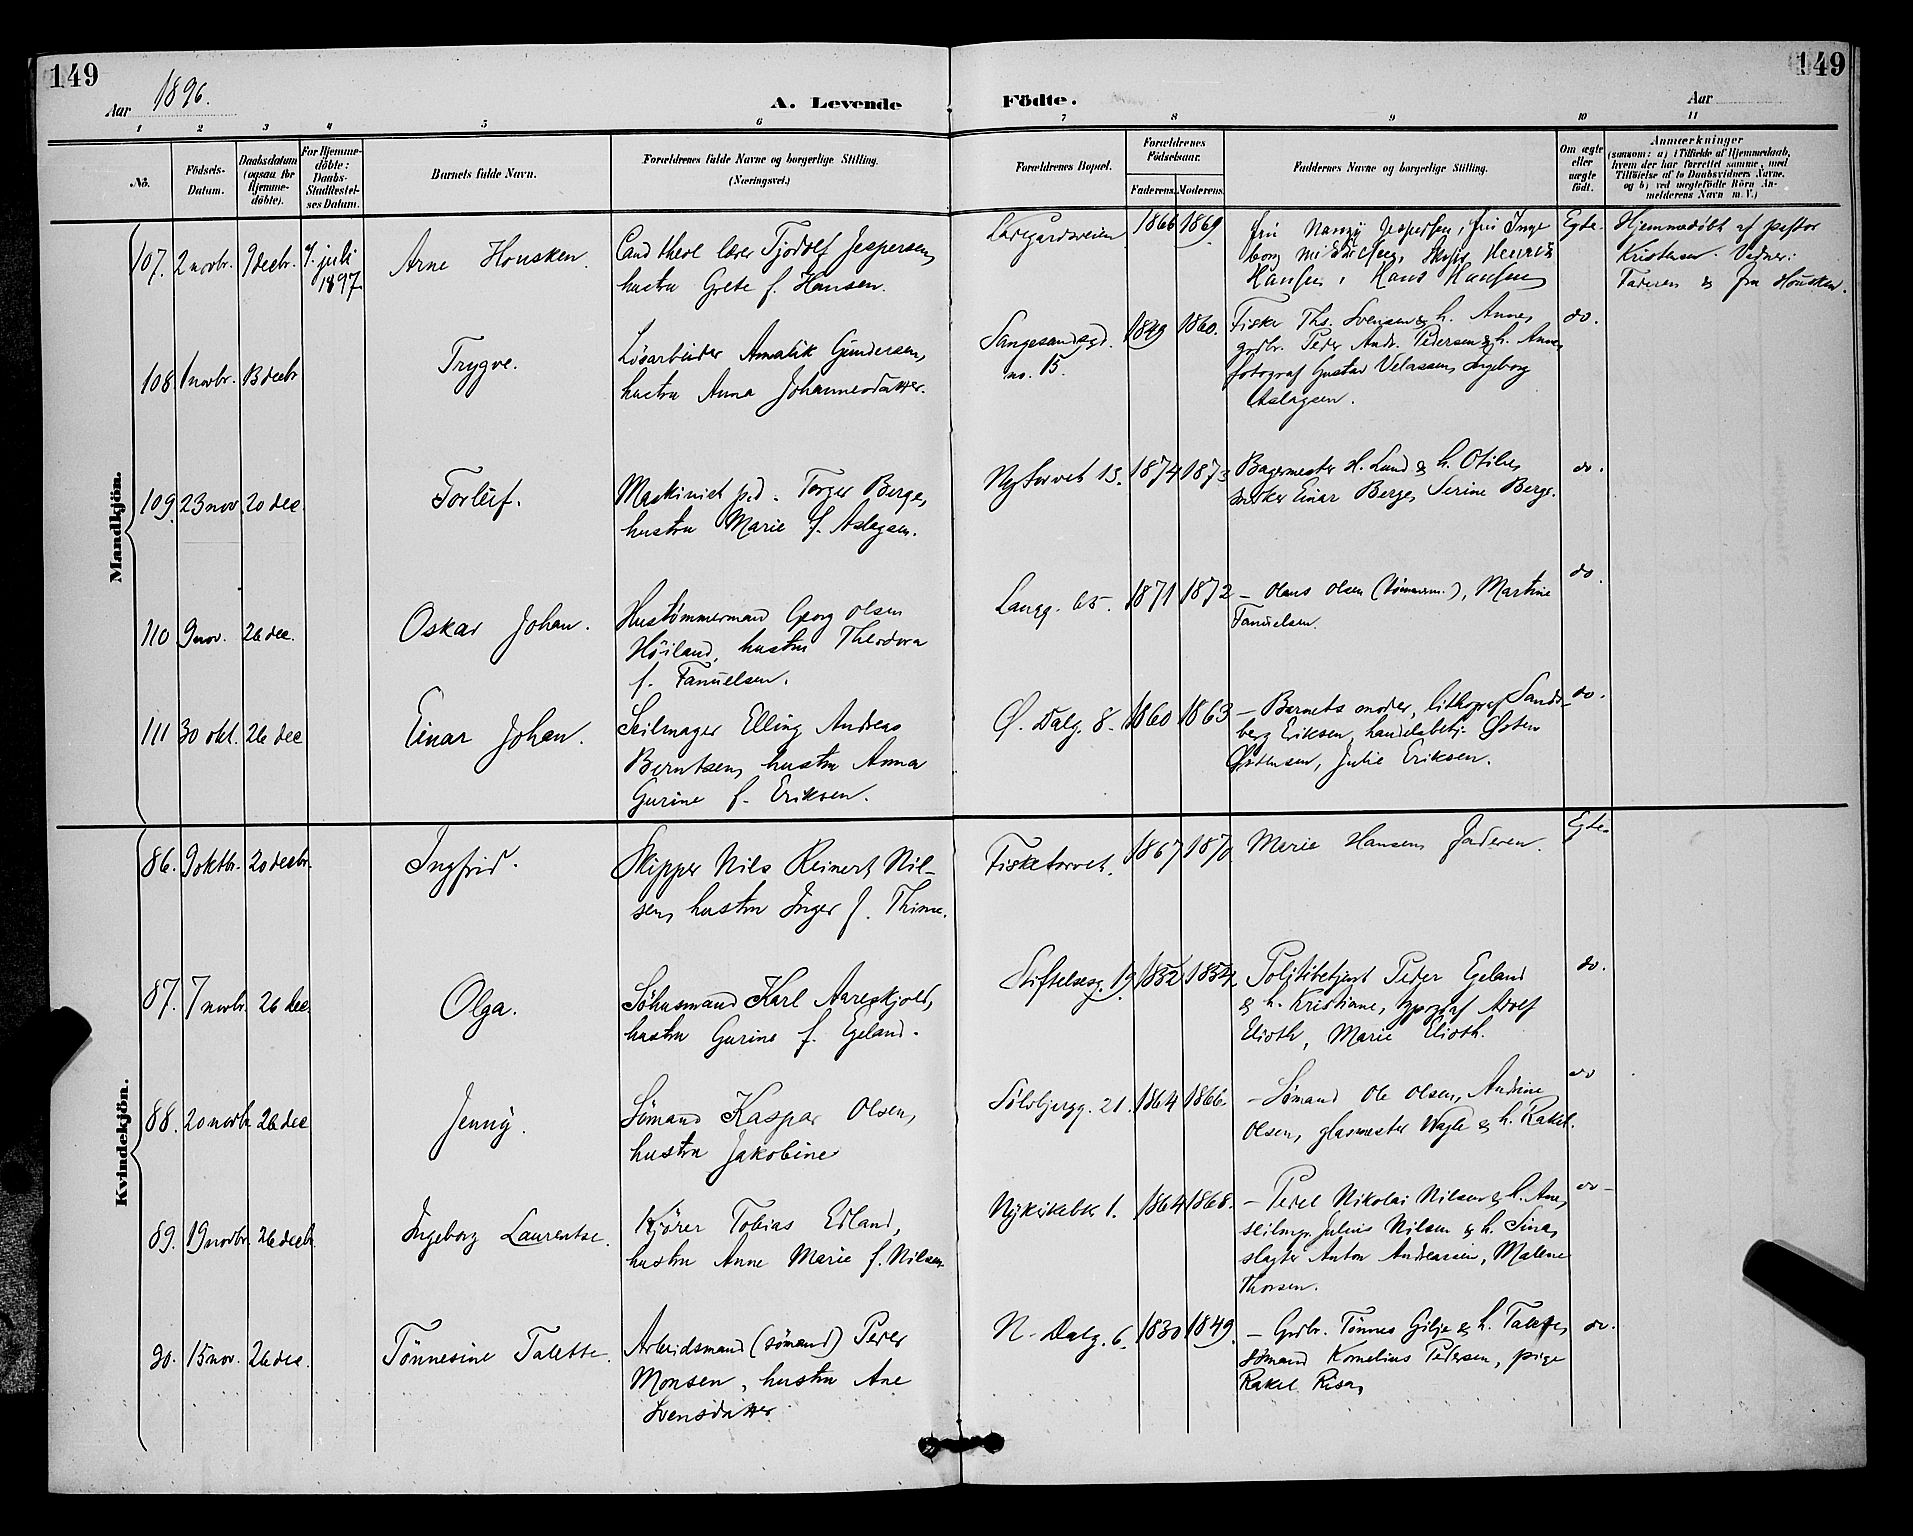 149
149
Aar 1896.
A. Levende
Födte.
Aar
1 2 3 4 5 6 7 8 9 10 11
No.
Födsels-
Datum.
Daabsdatum
(ogsaa for
Hjemme-
döbte).
For Hjemme-
döbte:
Daabs-
Stadfæstel-
ses Datum.
Barnets fulde Navn.
Forældrenes fulde Navne og borgerlige Stilling.
(Næringsvei.)
Forældrenes Bopæl.
Forældrenes
Födselsaar.
Faderens. Moderens.
Faddernes Navne og borgerlige Stilling.
Om ægte
eller
uægte
födt.
Anmærkninger
(saasom: a) i Tilfælde af Hjemmedaab,
hvem der har forrettet samme, med
Tilföielse af to Daabsvidners Navne,
og b) ved uægtefödte Börn An-
melderens Navn m. V.)
Mandkjön.
107. 2 novbr. 9 decbr. 7. juli
1897.
Arne Housken.
Cand theol lærer Tjodolf Jespersen,
hustru Grete f. Hansen.
1866 1869.
Hansen, Hans Hansen
Egte.
Hjemmedøbt af pastor
Kristensen. Vidner:
Faderen & fru Housken.
108. 1 novbr. 13 decbr
Trygve.
Løsarbeider Amalik Gundersen,
hustru Anna Johannesdatter.
no. 15.
1849 1860.
Fisker Ths. Svensen & h. Anne,
grdbr. Peder Andr. Pedersen & h. Anne,
fotograf Gustav Ingeborg
Aslagsen.
do.
109. 23 nov 20 dec
Torleif.
Maskinist Torger Berge,
hustru Marie f. Aslagsen.
Nytorvet 13.
1874 1873
Bagermester H. Lund & h. Otilie,
Einar Berge, Serine Berge.
do.
110 9 nov. 26 dec.
Oskar Johan.
Hustømmermand Georg Olsen
Höiland, hustru Theodora
f. Fanuelsen.
Langg. 65.
1871 1872
– Olaus Olsen (tømmerm.), Martine
Fanuelsen.
do.
111 30 okt. 26 dec
Einar Johan.
Seilmager Elling Andreas
Berntsen, hustru Anna
Gurine f. Eriksen.
Ø. Dalg. 8.
1860 1863
– Barnets moder, lithograf Sand-
berg Eriksen, handelsbetj. Østen
Julie Eriksen.
do.
Kvindekjön.
86. 9 oktbr. 20 decbr.
Ingfrid.
Skipper Nils Reinert Nil-
sen, hustru Inger f. Thime.
Fisketorvet.
1867 1870
Marie Hansen Jaderen.
Egte.
87. 7 novbr. 26 dec.
Olga.
Söhusmand Karl Aareskjold,
hustru Gurine f. Egeland.
Stiftelsesg. 19.
1852 1854
Politibetjent Peder Egeland
& h. Kristiane, typograf Adolf
Elioth, Marie Elioth.
do.
88. 20 novbr 26 dec
Jenny.
Sømand Kaspar Olsen,
hustru Jakobine
Sølvbjergg. 21.
1864 1866.
– Sømand Ole Olsen, Andrine
Olsen, glasmester Vagle & h. Rakel.
do
89. 19 novbr. 26 decbr.
Ingeborg Laurentse.
Kjører Tobias Edland,
hustru Anne Marie f. Nilsen.
Nykirkebk 1.
1864 1868.
– Peder Nikolai Nilsen & h. Ane,
seilmg. Julius Nilsen & h. Sina,
slagter Anton Andreassen, Malene
Thorsen.
do –
90. 15 nov. 26 dec.
Tönnesine Talette.
Arbeidsmand (sømand) Peder
Monsen, hustru Ane
Svensdatter.
N. Dalg. 6.
1830 1849.
– Grdbr. Tønnes Gilje & h. Talette,
sømand Kornelius Pedersen, pige
Rakel Risa,
do.